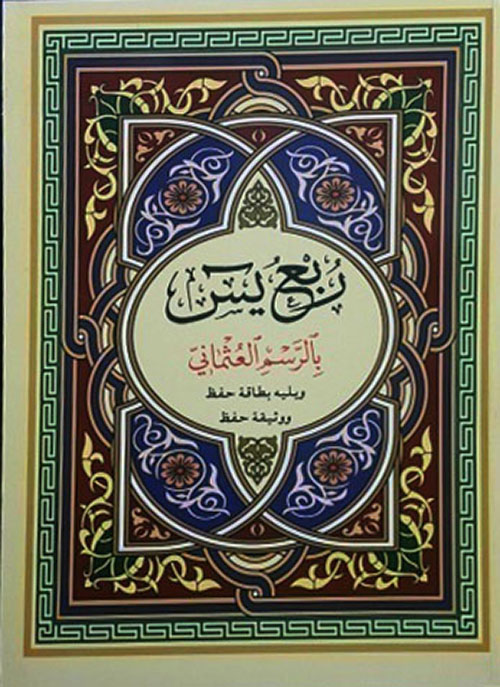 رُبْعُ يس
بِالرَّسْمِ الْعُثْمَانِيِّ
ويليه بطاقة حفظ
ووثيقة حفظ